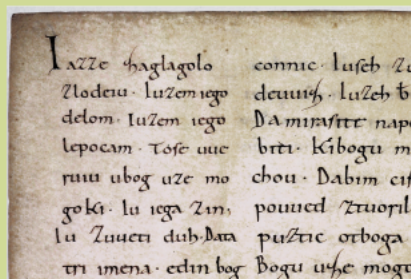 Iazze zaglagolo
zlodeiu. Iuzem iego
delom. Iuzem iego
lepocam. Tose uue
ruiu ubog uze mo
goki. Iu iega zin,
Iu zuueti duh. Data
tri imena. edin bog
connic. Iuseh zu
deuuiz. Iuzeh b
Da mirastete napo
brti. Ki bogu m
chou. Dabim cis
pouued ztuoril
puztic otboga
Bogu uze mogo